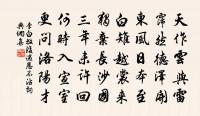 天作雲與雷
霈然德澤開
東風日本至
白雉越裳來
獨棄長沙國
三年未許回
何時入宣室
更問洛陽才
李白放後遇恩不沾詞
典網集